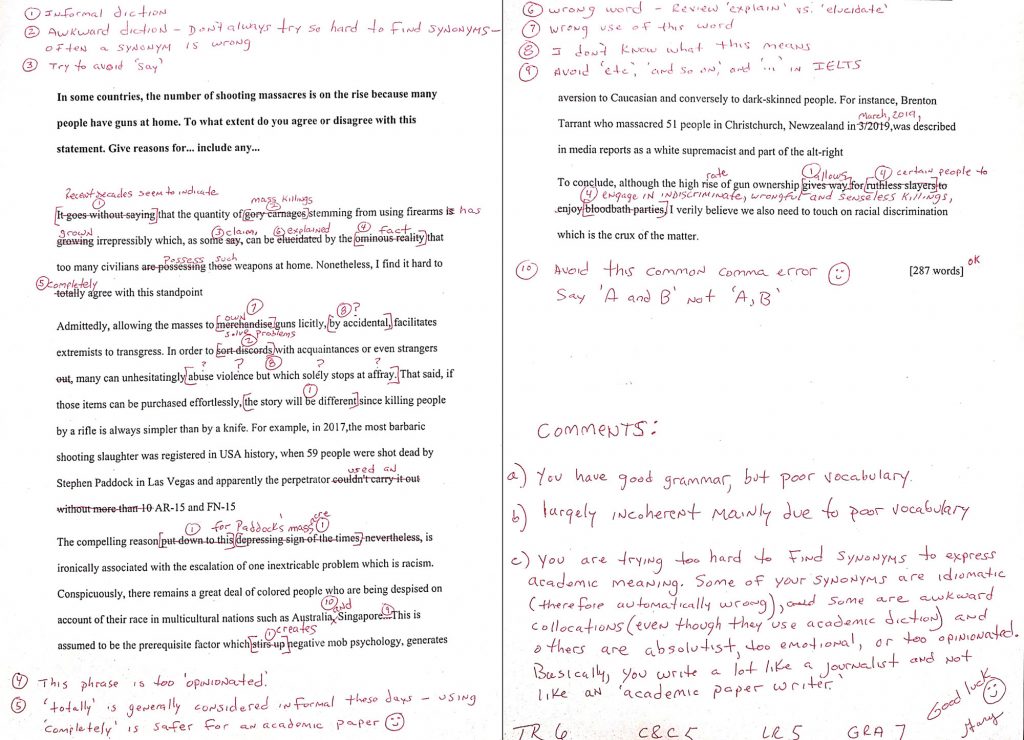 ① Informal diction
② Awkward diction – Don't always try so hard to find synonyms –
often a synonym is wrong
③ Try to avoid 'say'
In some countries, the number of shooting massacres is on the rise because many
people have guns at home. To what extent do you agree or disagree with this
statement. Give reasons for... include any...
Recent decades seem to indicate
① mass killings
②
[It goes without saying] that the quantity of [gory carnages] stemming from using firearms is has
grown ③ claim, ⑥ explained ④ fact
growing irrepressibly which, as some say, can be elucidated by the [ominous reality] that
Possess such
too many civilians are possessing those weapons at home. Nonetheless, I find it hard to
⑤ completely
totally agree with this standpoint
own ⑦ ⑧ ?
Admittedly, allowing the masses to [merchandise] guns licitly, [by accidental,] facilitates
solve problems
②
extremists to transgress. In order to [sort discords] with acquaintances or even strangers
? ? ⑧ ? ?
out, many can unhesitatingly [abuse violence but which solely stops at affray.] That said, if
①
those items can be purchased effortlessly, [the story will be different] since killing people
by a rifle is always simpler than by a knife. For example, in 2017,the most barbaric
shooting slaughter was registered in USA history, when 59 people were shot dead by
used an
Stephen Paddock in Las Vegas and apparently the perpetrator couldn't carry it out
without more than 10 AR-15 and FN-15
① for Paddock's massacre ①
The compelling reason [put down to this] [depressing sign of the times] nevertheless, is
ironically associated with the escalation of one inextricable problem which is racism.
Conspicuously, there remains a great deal of colored people who are being despised on
⑩ and ⑨
account of their race in multicultural nations such as Australia, Singapore...This is
① creates
assumed to be the prerequisite factor which [stirs up] negative mob psychology, generates
④ This phrase is too 'opinionated.'
⑤ 'totally' is generally considered informal these days – using
'completely' is safer for an academic paper
⑥ wrong word – Review 'explain' vs. 'elucidate'
⑦ wrong use of this word
⑧ I don't know what this means
⑨ Avoid 'etc', 'and so on', and '...' in IELTS
aversion to Caucasian and conversely to dark-skinned people. For instance, Brenton
March, 2019,
Tarrant who massacred 51 people in Christchurch, Newzealand in 3/2019,was described
in media reports as a white supremacist and part of the alt-right
rate ① allows ④ certain people to
To conclude, although the high rise of gun ownership [gives way] for [ruthless slayers] to
④ engage in indiscriminate, wrongful and senseless killings,
enjoy [bloodbath parties,] I verily believe we also need to touch on racial discrimination
which is the crux of the matter.
⑩ Avoid this common comma error
Say 'A and B' not 'A, B'
ok
[287 words]
Comments:
a) You have good grammar, but poor vocabulary.
b) largely incoherent mainly due to poor vocabulary
c) You are trying too hard to find synonyms to express
academic meaning. Some of your synonyms are idiomatic
(therefore automatically wrong), and some are awkward
collocations (even though they use academic diction) and
others are absolutist, too emotional, or too opinionated.
Basically, you write a lot like a journalist and not
like an 'academic paper writer.'
Good luck
TR 6 C&C 5 LR 5 GRA 7